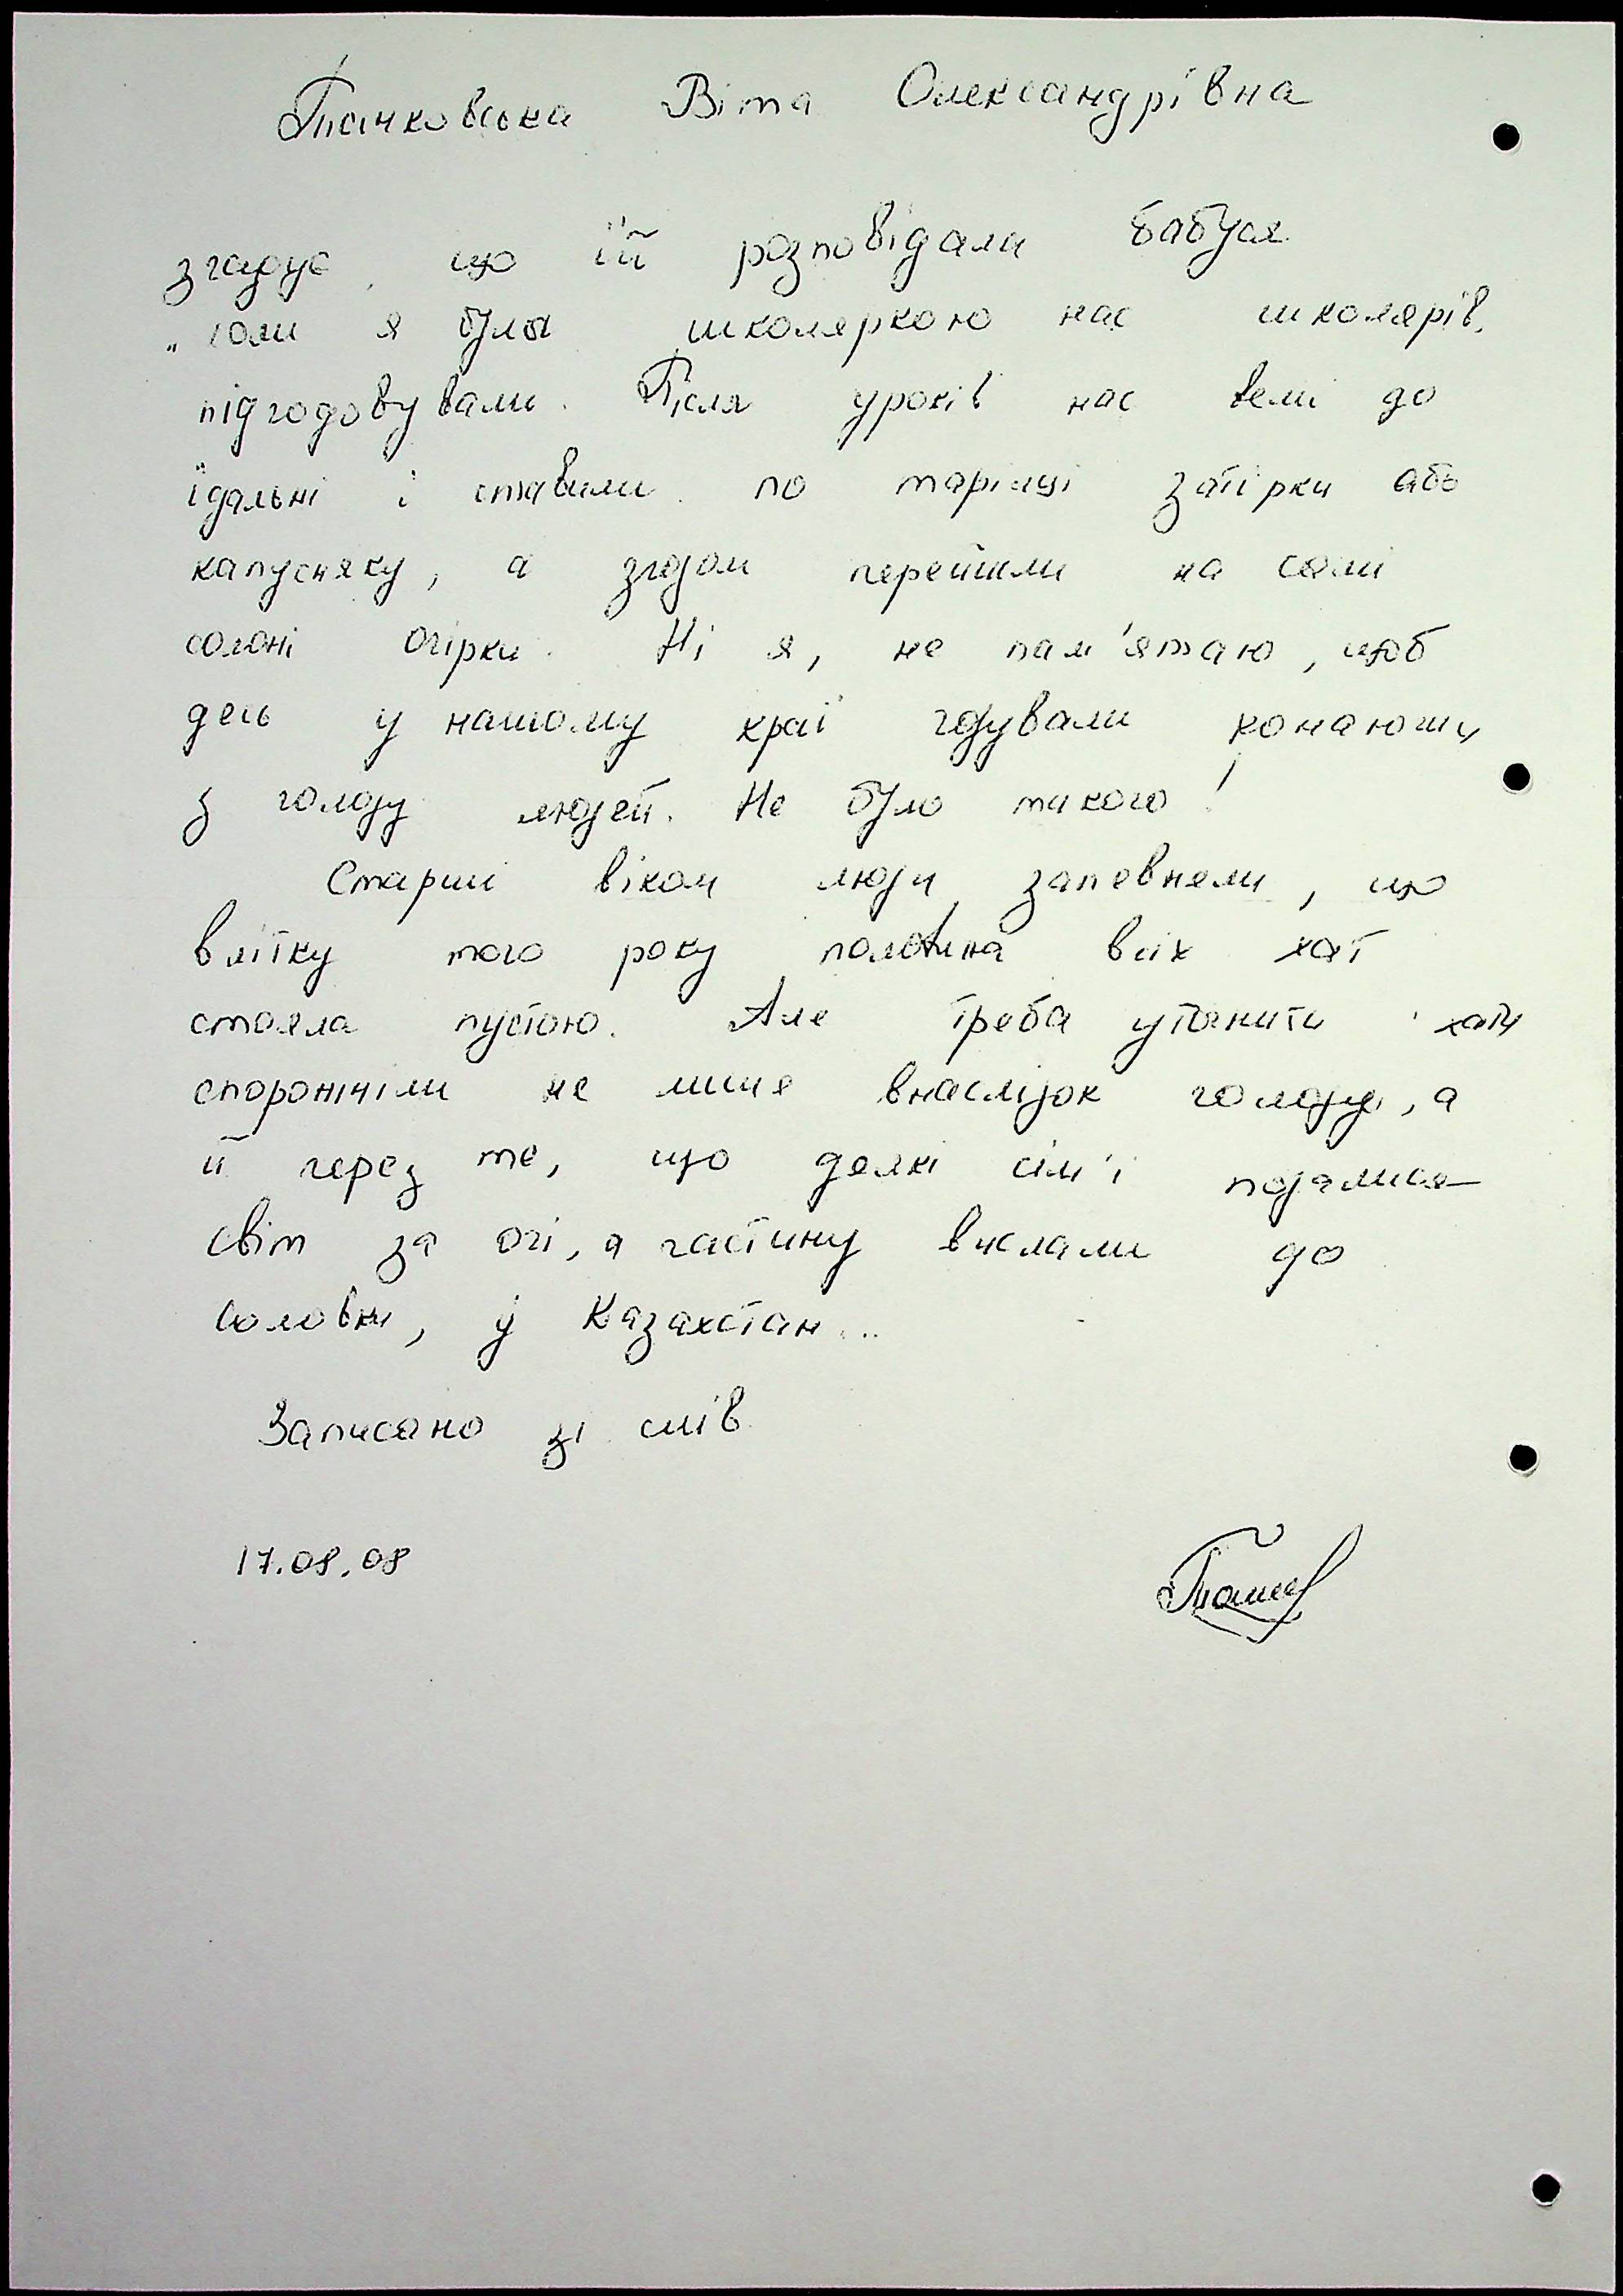 Віта Олександрівна
згадує, що їй розповідала бабуся
„коли я була школяркою нас школярів,
підгодовували. Після уроків нас вели до
їдальні і ставили по тарілці затірки або
капусняку, а згодом перейшли на самі
солоні огірки. Ні я, не пам'ятаю, щоб
десь у нашому краї годували конаючих
з голоду людей. Не було такого!
Старші віком люди запевняли, що
влітку того року половина всіх хат
стояла пусткою. Але треба уточнити хати
спорожніли не лише внаслідок голоду, а
й через те, що деякі сім'ї подалися
світ за очі, а частину вислали до
Соловки, у Казахстан...
Записано зі слів
17.08.08